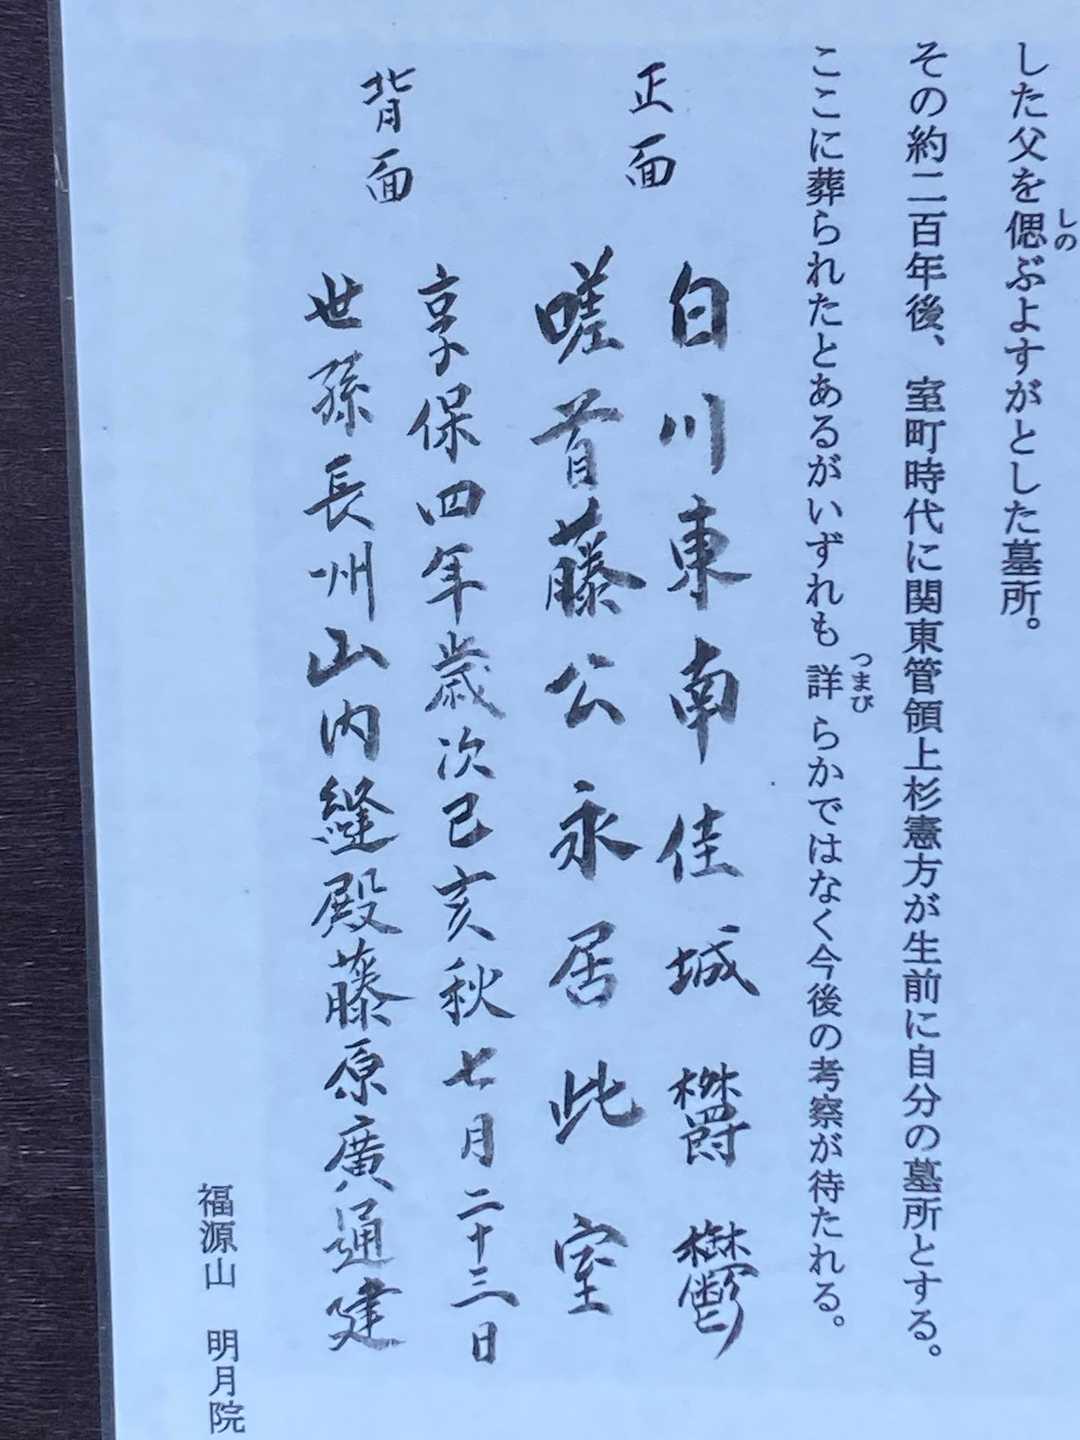 した父を偲ぶよすがとした墓所。
しの
その約二百年後、室町時代に関東管領上杉憲方が生前に自分の墓所とする。
ここに葬られたとあるがいずれも詳らかではなく今後の考察が待たれる。
つまび
正面
白川東南佳城欝鬱
嗟首藤公永居此室
背面
享保四年歳次己亥秋七月二十三日
世孫長州山内縫殿藤原廣通建
福源山 明月院